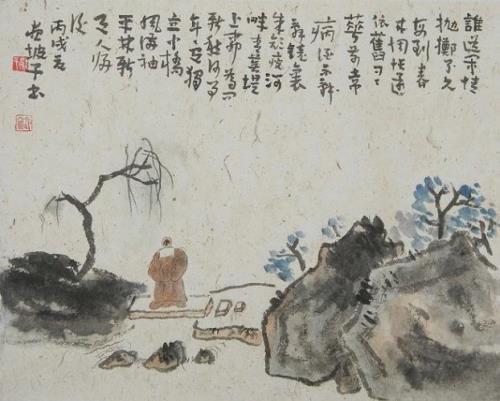 誰道閑情
拋擲久
每到春
來惆悵還
依舊日日
華前常
病酒不辭
鏡裏
朱顏瘦河
畔青蕪堤
上柳為問
新愁何事
年年獨
立小橋
風滿袖
平林新
月人歸
後
丙戌夏